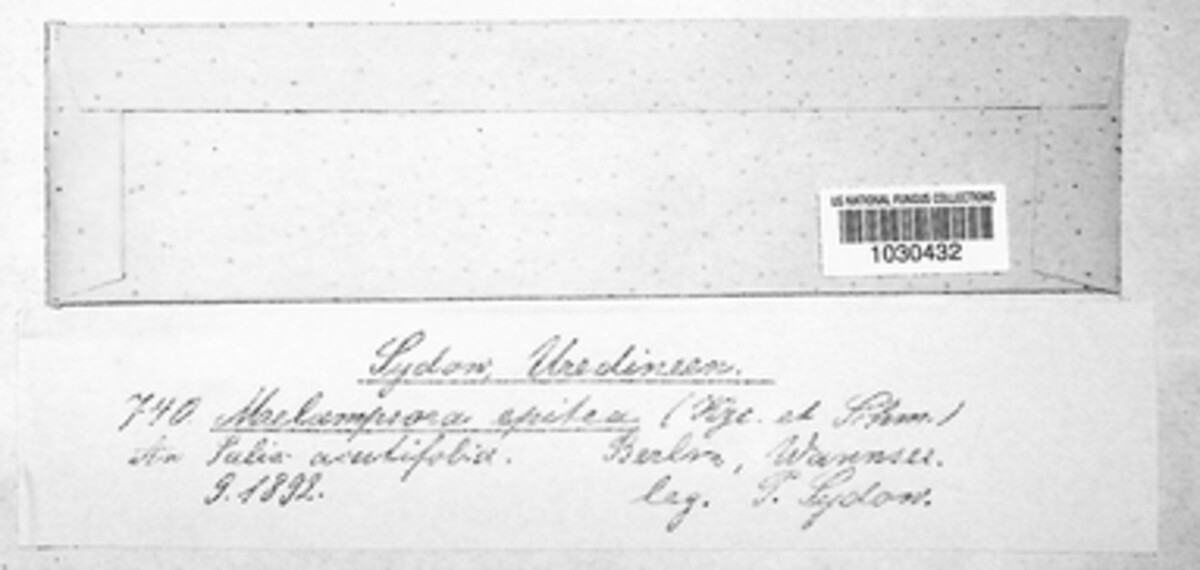 US NATIONAL FUNGUS COLLECTIONS
1030432
Sydow, Uredineen.
740. Melampsora epitea (Kze. et Schm.)
An Salix acutifolia. Berlin, Wannsee.
9.1892. leg. P. Sydow.